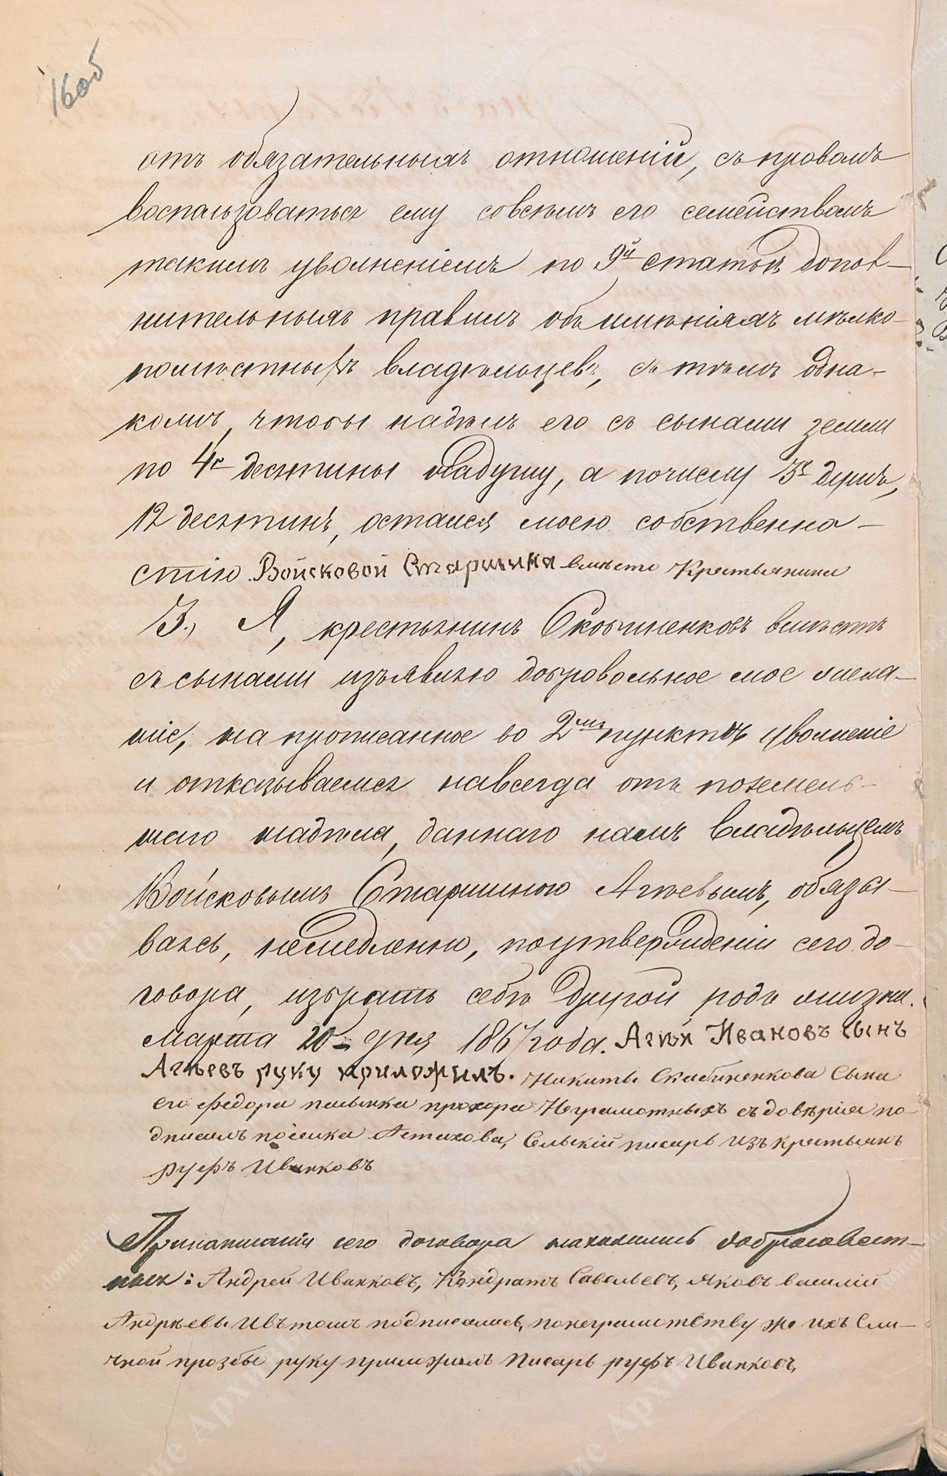 16об
отъ обязательныхъ отношеній, съ правомъ
воспользоваться ему совсѣмъ его семействомъ
такимъ увольненіемъ по 9й статьѣ допол-
нительныхъ правилъ объ имѣніяхъ мѣлко-
помѣстныхъ владѣльцевъ, съ тѣмъ одна-
кожъ, чтобы надѣлъ его съ сынами земли
по 4е десятины надушу, а почислу 3х душъ,
12 десятинъ, остался моею собственно-
стію Войсковой Старшина вмѣсто Крестьянина
3., Я, крестьянинъ Скобиненковъ вмѣстѣ
съ сынами изъявляю добровольное мое жела-
ніе, на прописанное во 2мъ пунктѣ увольненіе
и отказываемся навсегда отъ поземель-
наго надѣла, даннаго намъ владѣльцемъ
Войсковымъ Старшиною Агѣевымъ, обязы-
ваясь, немедленно, поутвержденіи сего до-
говора, избрать себѣ другой родъ жизни.
Марта 20 дня 1867 года. Агѣй Ивановъ сынъ
Агѣевъ руку приложилъ. Никиты Скабиненкова Сына
его Федора пасынка прохора Неграмотныхъ съ довѣрія по-
дписалъ поселка Астахова, Сельскій писарь изъ крестьянъ
руфъ Иванковъ
Принаписаніи сего договора находились добросовѣст-
ные: Андрей Иванковъ, Кондратъ Савельевъ, яковъ василій
Андрѣевы Ивъ томъ подписались, понеграмотству же ихъ Сли-
чной прозбы руку приложилъ Писарь руфъ Иванковъ,